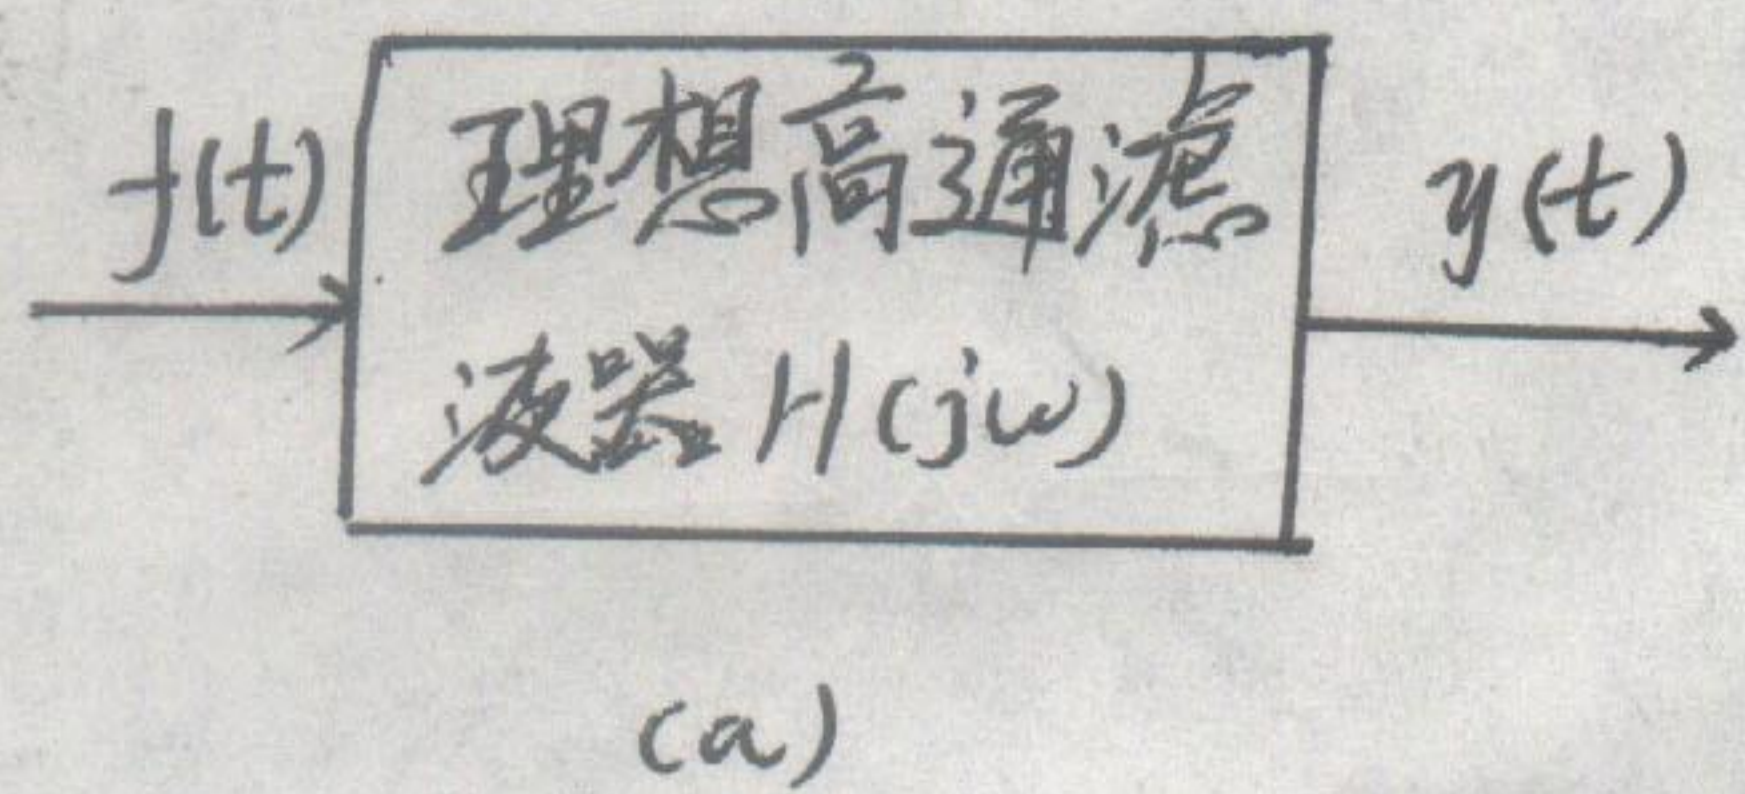 f(t)
理想高通滤
波器 H(jω)
y(t)
(a)